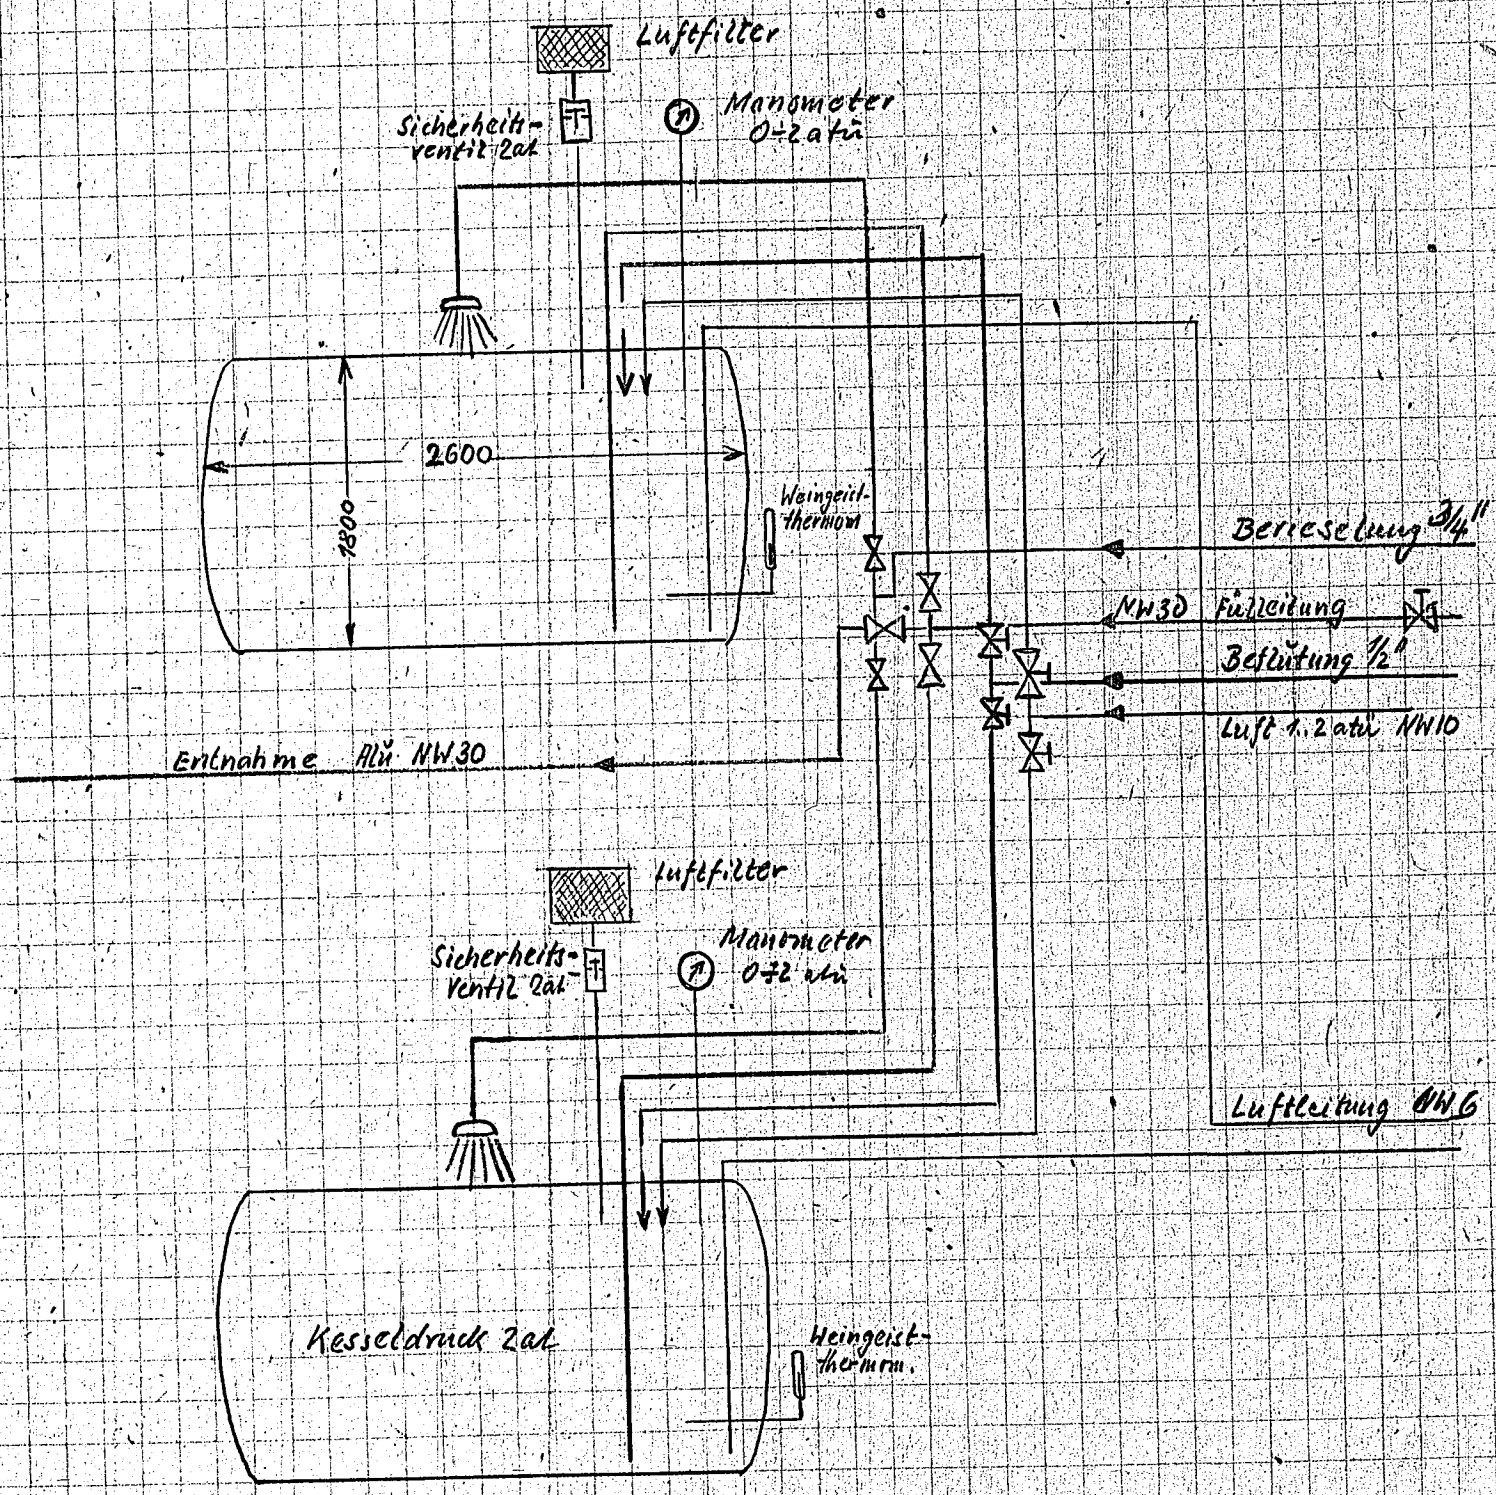 Luftfilter
Sicherheits-
ventil 2at
Manometer
0÷2 atü
2600
1800
Weingeist-
thermom
Berieselung 3/4"
NW30 Fülleitung
Beflutung 1/2"
Luft 1,2 atü NW10
Entnahme Alu NW30
Luftfilter
Sicherheits-
Ventil 2at
Manometer
0÷2 atü
Luftleitung NW6
Kesseldruck 2at
Weingeist-
thermom.